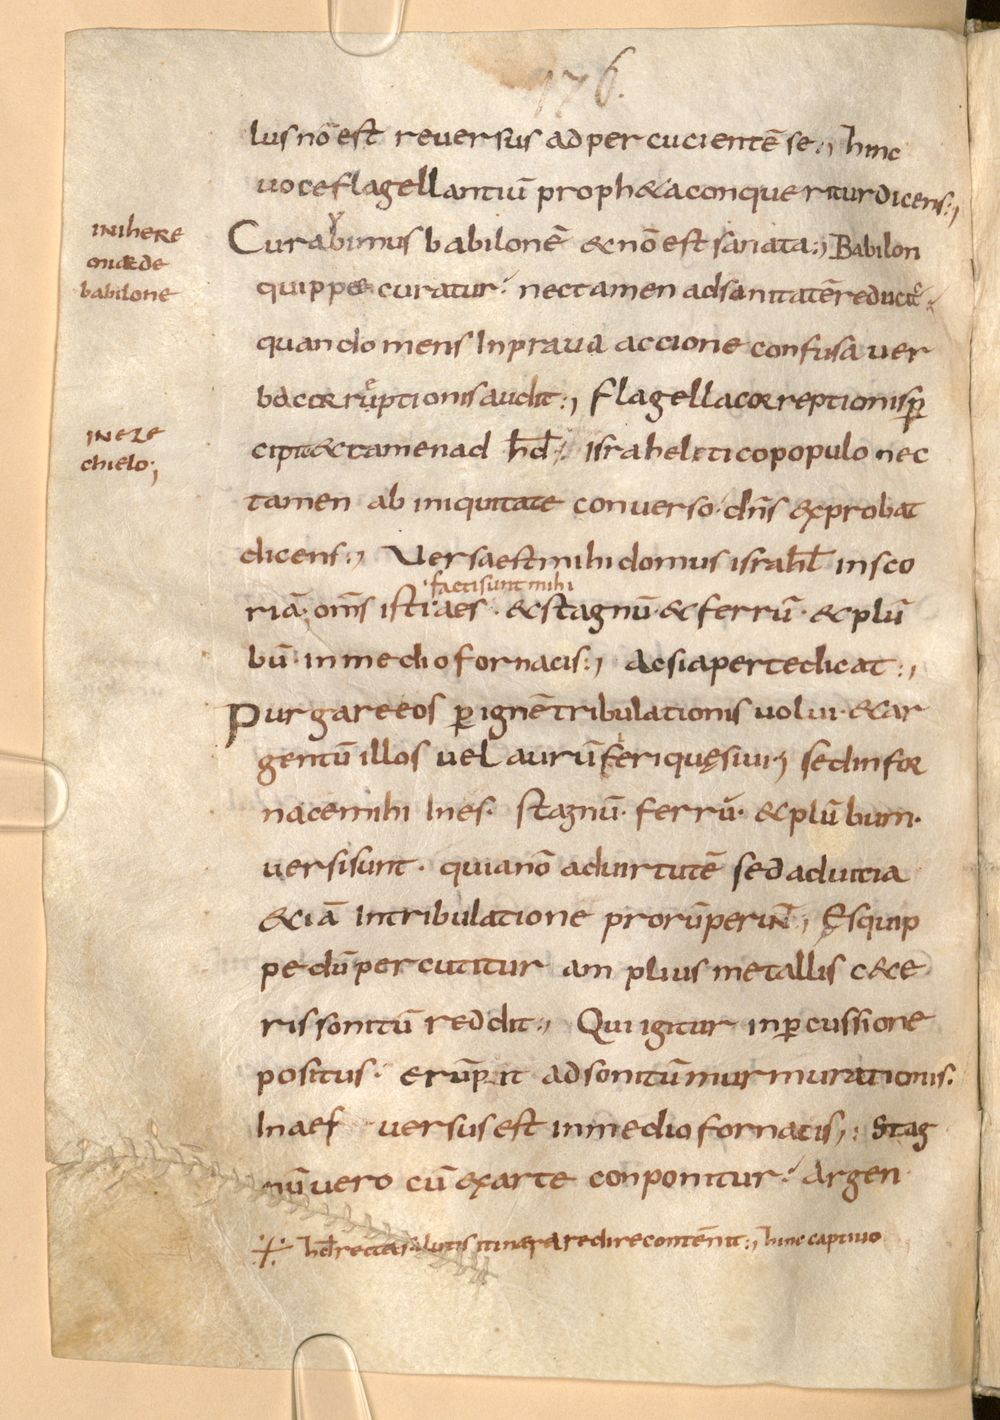 176.
lus nō est reversus ad percucientē se:, hinc
voce flagellantiū proph&a conqueritur dicens:,
IN IHERE
Curabimus babilonē & nō est sanata:, Babilon
MIA & DE
BABILONE
quippe curatur. nec tamen ad sanitatē reducit᷒.
quando mens In prava accione confusa ver
ba corruptionis audit:, flagella correptionis ꝑ
IN EZE
CHIELO;
cipit & tamen ad h̄d ÷ Israhelitico populo nec
tamen ab iniquitate converso. dn̄s exprobat
dicens:, Versa est mihi domus israhl̄ in sco
facti sunt mihi
riā. om̄s isti aes. & stagnū. & ferrū. & plū
bū. in medio fornacis:, Ac si aperte dicat:,
Purgare eos ꝑ ignē tribulationis volui. & ar
gentū illos vel aurū fieri quęsivi; sed in for
nace mihi In es. stagnū. ferrū. & plūbum.
versi sunt. quia nō ad virtutē sed ad vitia
&iā In tribulatione prorūperunt;, Ęs quip
pe dū percutitur amplius metallis c&e
ris sonitū reddit:, Qui igitur in ꝑcussione
positus. erūpit ad sonitū murmurationis.
In aes versus est in medio fornacis,: Stag
nū vero cū ex arte conponitur. argen
÷ h̄d recta salutis itinera redire contēnit:, hinc captivo